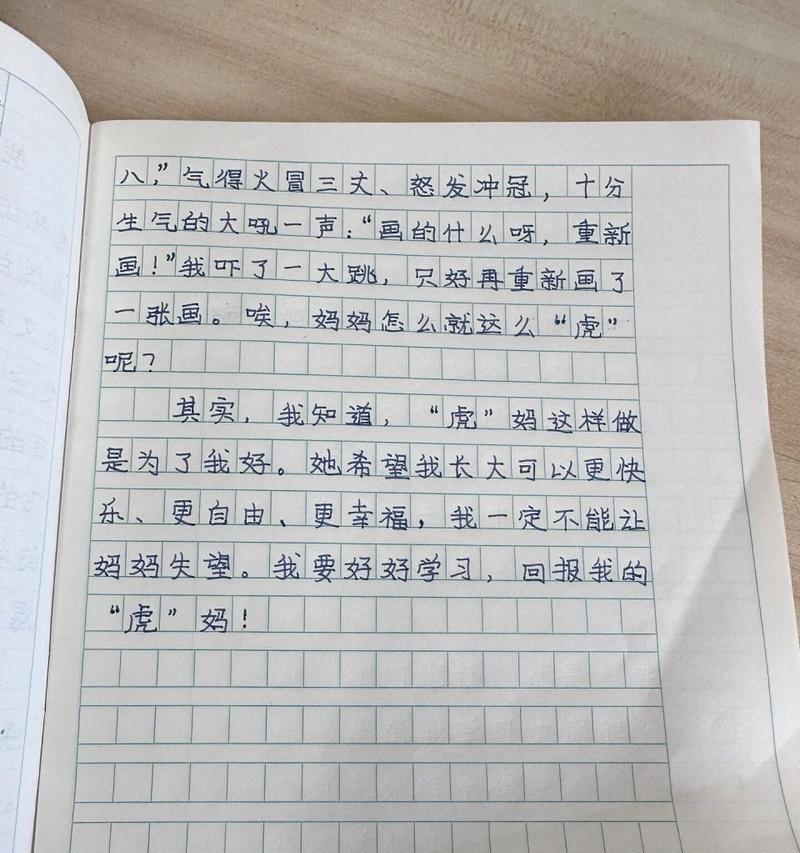 八,”气得火冒三丈、怒发冲冠，十分
生气的大吼一声：“画的什么呀，重新
画！”我吓了一大跳，只好再重新画了
一张画。唉，妈妈怎么就这么“虎”
呢？
其实，我知道，“虎”妈这样做
是为了我好。她希望我长大可以更快
乐、更自由、更幸福，我一定不能让
妈妈失望。我要好好学习，回报我的
“虎”妈！